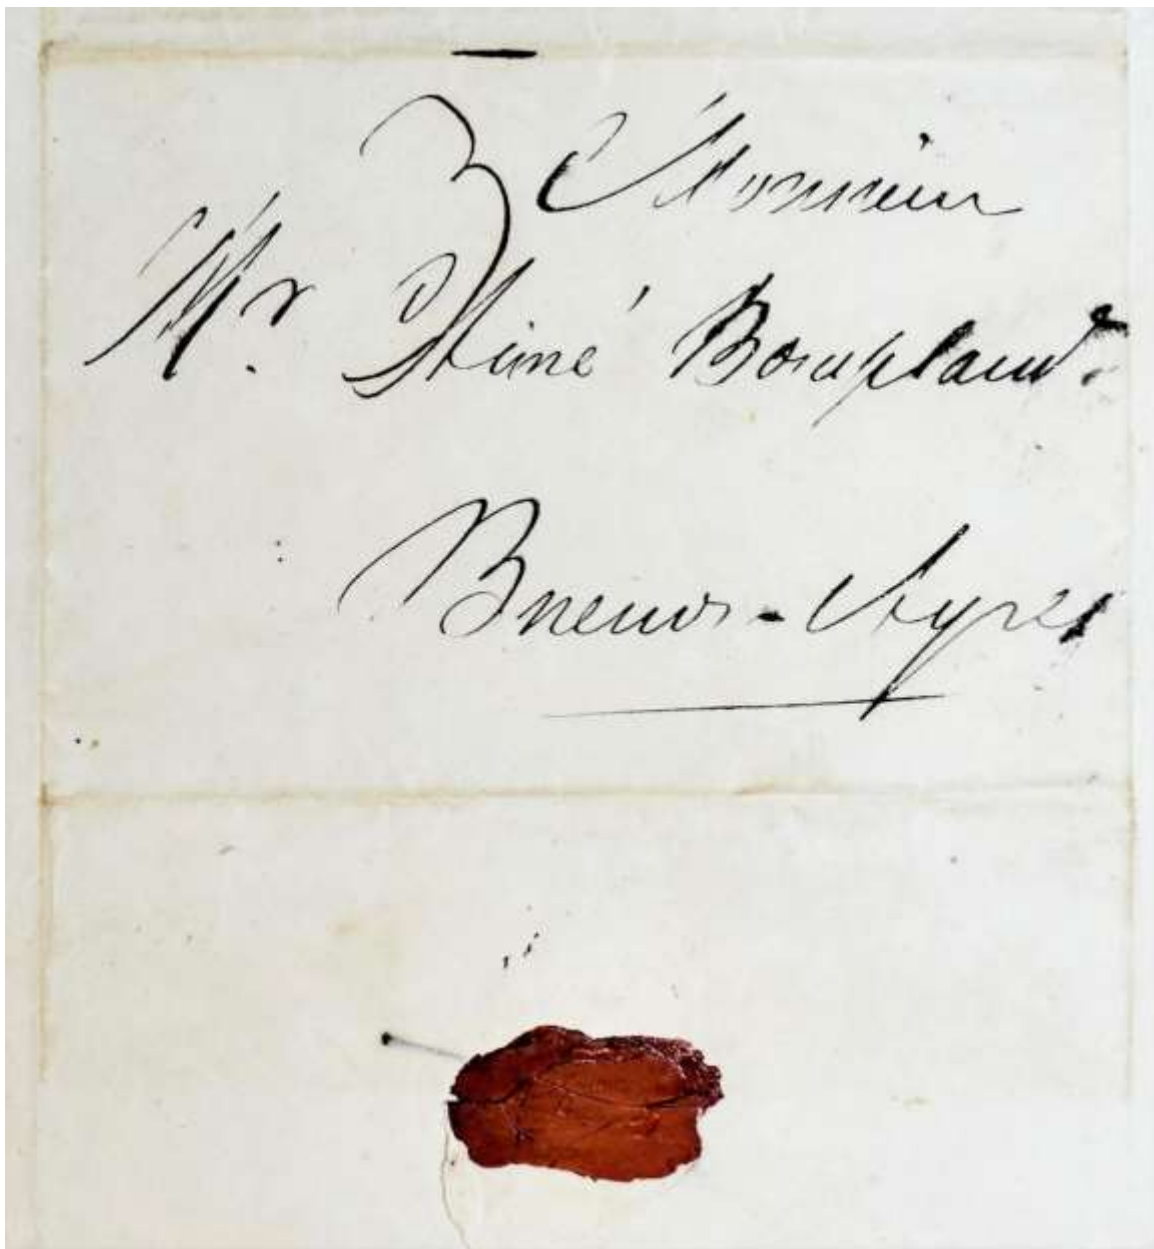 Monsieur
Mr. Aimé Bonpland.
Buenos-Ayres